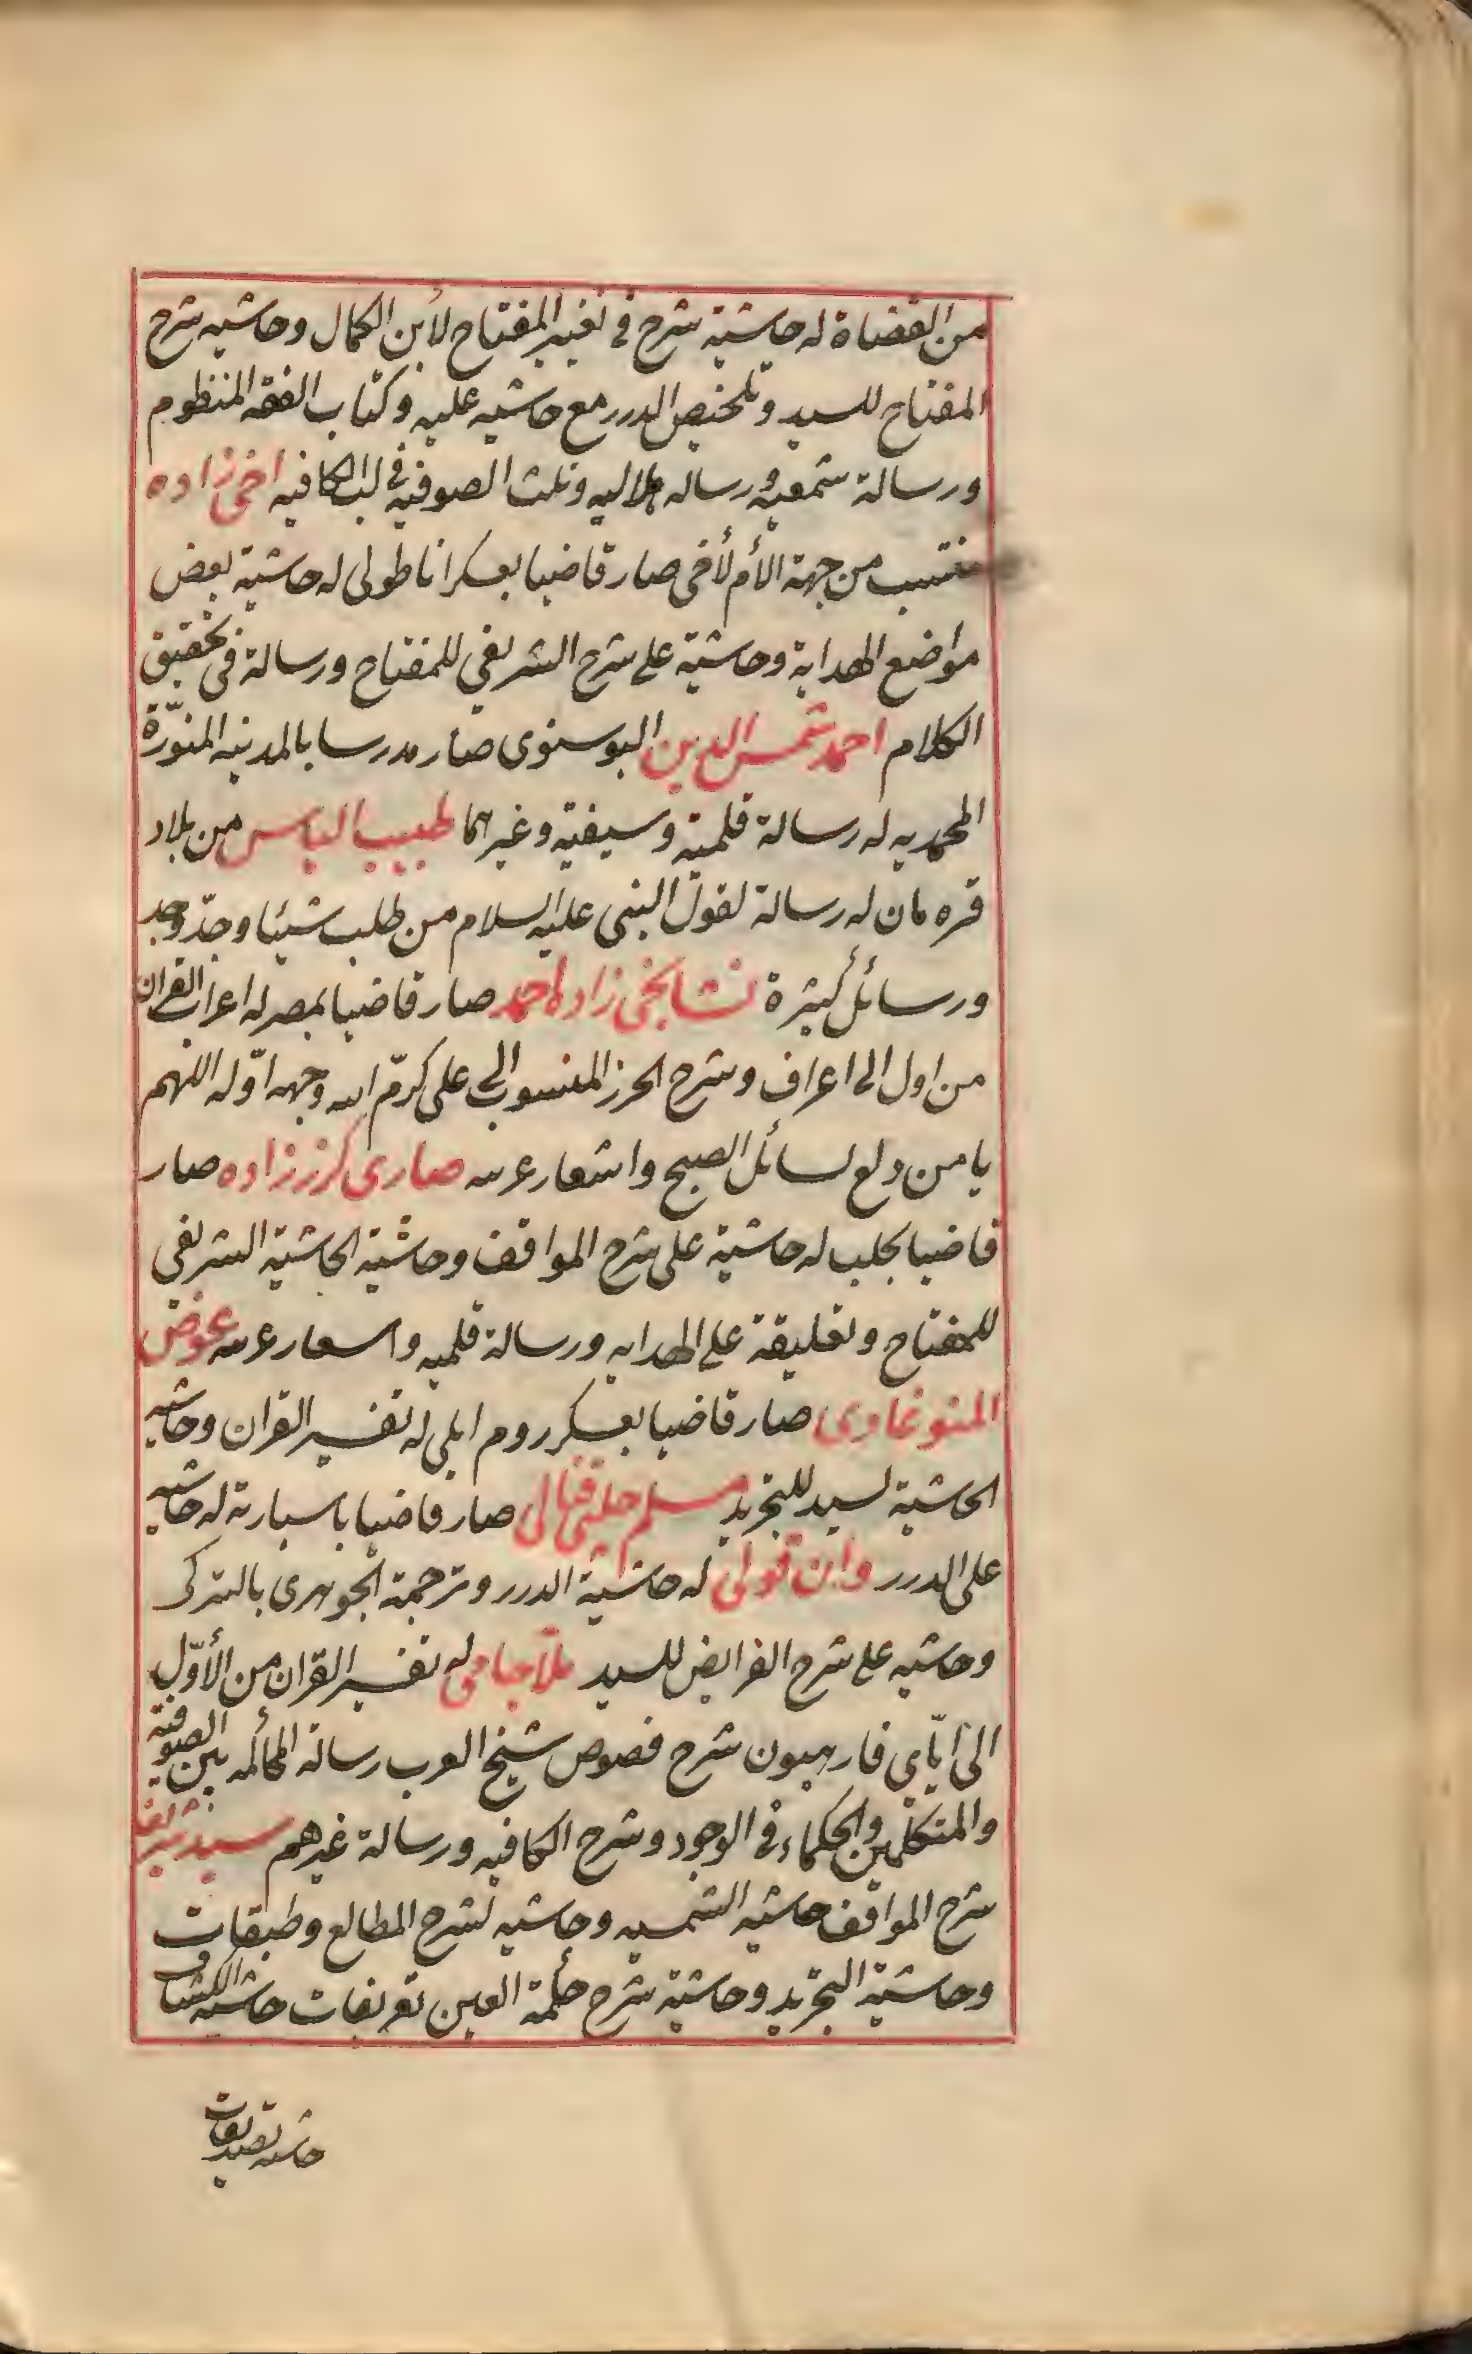 من القضاة له حاشية شرح في تغيير المفتاح لابن الكمال وحاشيه شرح
المفتاح للسيد وتلخيص الدرر مع حاشيه عليه وكتاب الفقه المنظوم
ورسالة شمعيه ورساله هلاليه وثلث الصوفيه في لب الكافيه اخى زاده
منتسب من جهة الأم لأخى صار قاضيا بعسكر اناطولى له حاشية بعض
مواضع الهداية وحاشية على شرح الشريفي للمفتاح ورسالة فى تحقيق
الكلام احمد شمس الدين البوسنوى صار مدرسا بالمدينه المنوّرة
المحمديه له رسالة قلمية وسيفيه وغيرهما طبيب الياس من بلاد
قره مان له رسالة لقول النبى عليه السلام من طلب شيئا وجدّ وجد
ورسائل كثيرة نشانجى زاده احمد صار قاضيا بمصر له اعراب القران
من اول الى اعراف وشرح الحرز المنسوب الى على كرّم الله وجهه اوّله اللهم
يا من دلع لسائل الصبح واشعار عربيه صارى كرز زاده صار
قاضيا بحلب له حاشية على شرح المواقف وحاشية الحاشية الشريفي
للمفتاح وتعليقة على الهدايه ورسالة قلميه واسعار عربيه عوض
المنوغادى صار قاضيا بعسكر روم ايلى له تفسير القران وحاشيه
الحاشية لسيد للتجريد مسلم چلبى صار قاضيا باسبارته له حاشيه
على الدرر وان قولى له حاشية الدرر وترجمة الجوهرى بالتركى
وحاشيه على شرح الفرايض للسيد ملا جامى له تفسير القران من الأوّل
الى ايّاي فارهبون شرح فصوص شيخ العرب رسالة المحاكمه بين الصوفيه
والمتكلمين والحكماء فى الوجود وشرح الكافيه ورسالة غيرهم سيد شريف
شرح المواقف حاشيه الشمسيه وحاشيه لشرح المطالع وطبقات
وحاشية التجريد وحاشية شرح حكمة العين تعريفات حاشيه الكشاف
حاشيه تصديقات